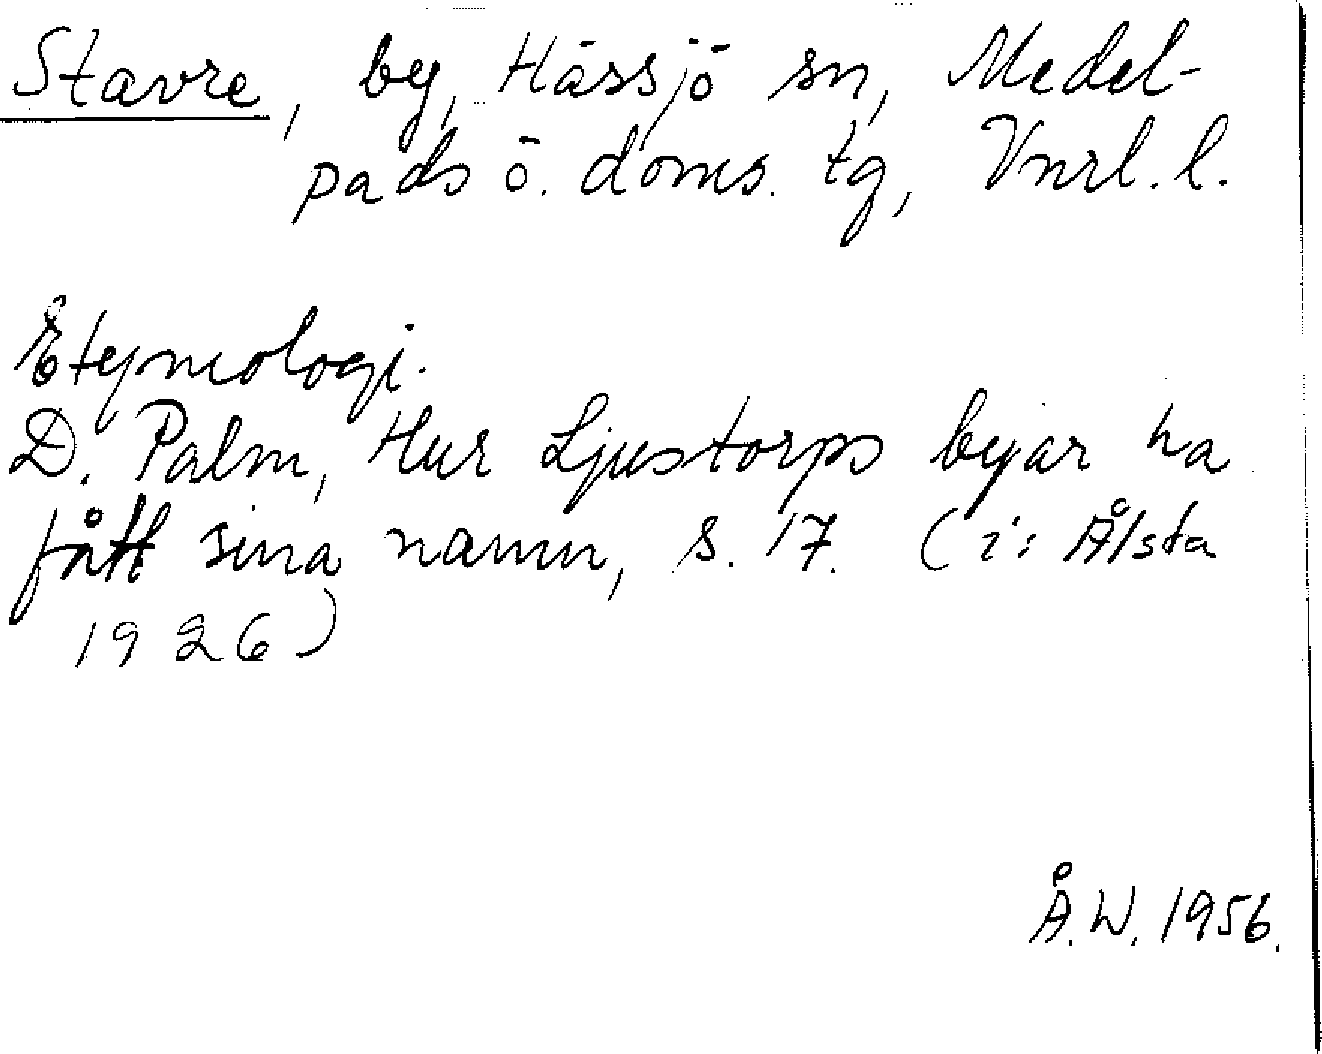 Stavre, by, Hässjö sn, Medel-
pads ö. doms. tg, Vnrl. l.
Etymologi.
D. Palm, Hur Ljustorps byar ha
fått sina namn, s. 17. (i: Ålsta
1926)
Å.W. 1956.